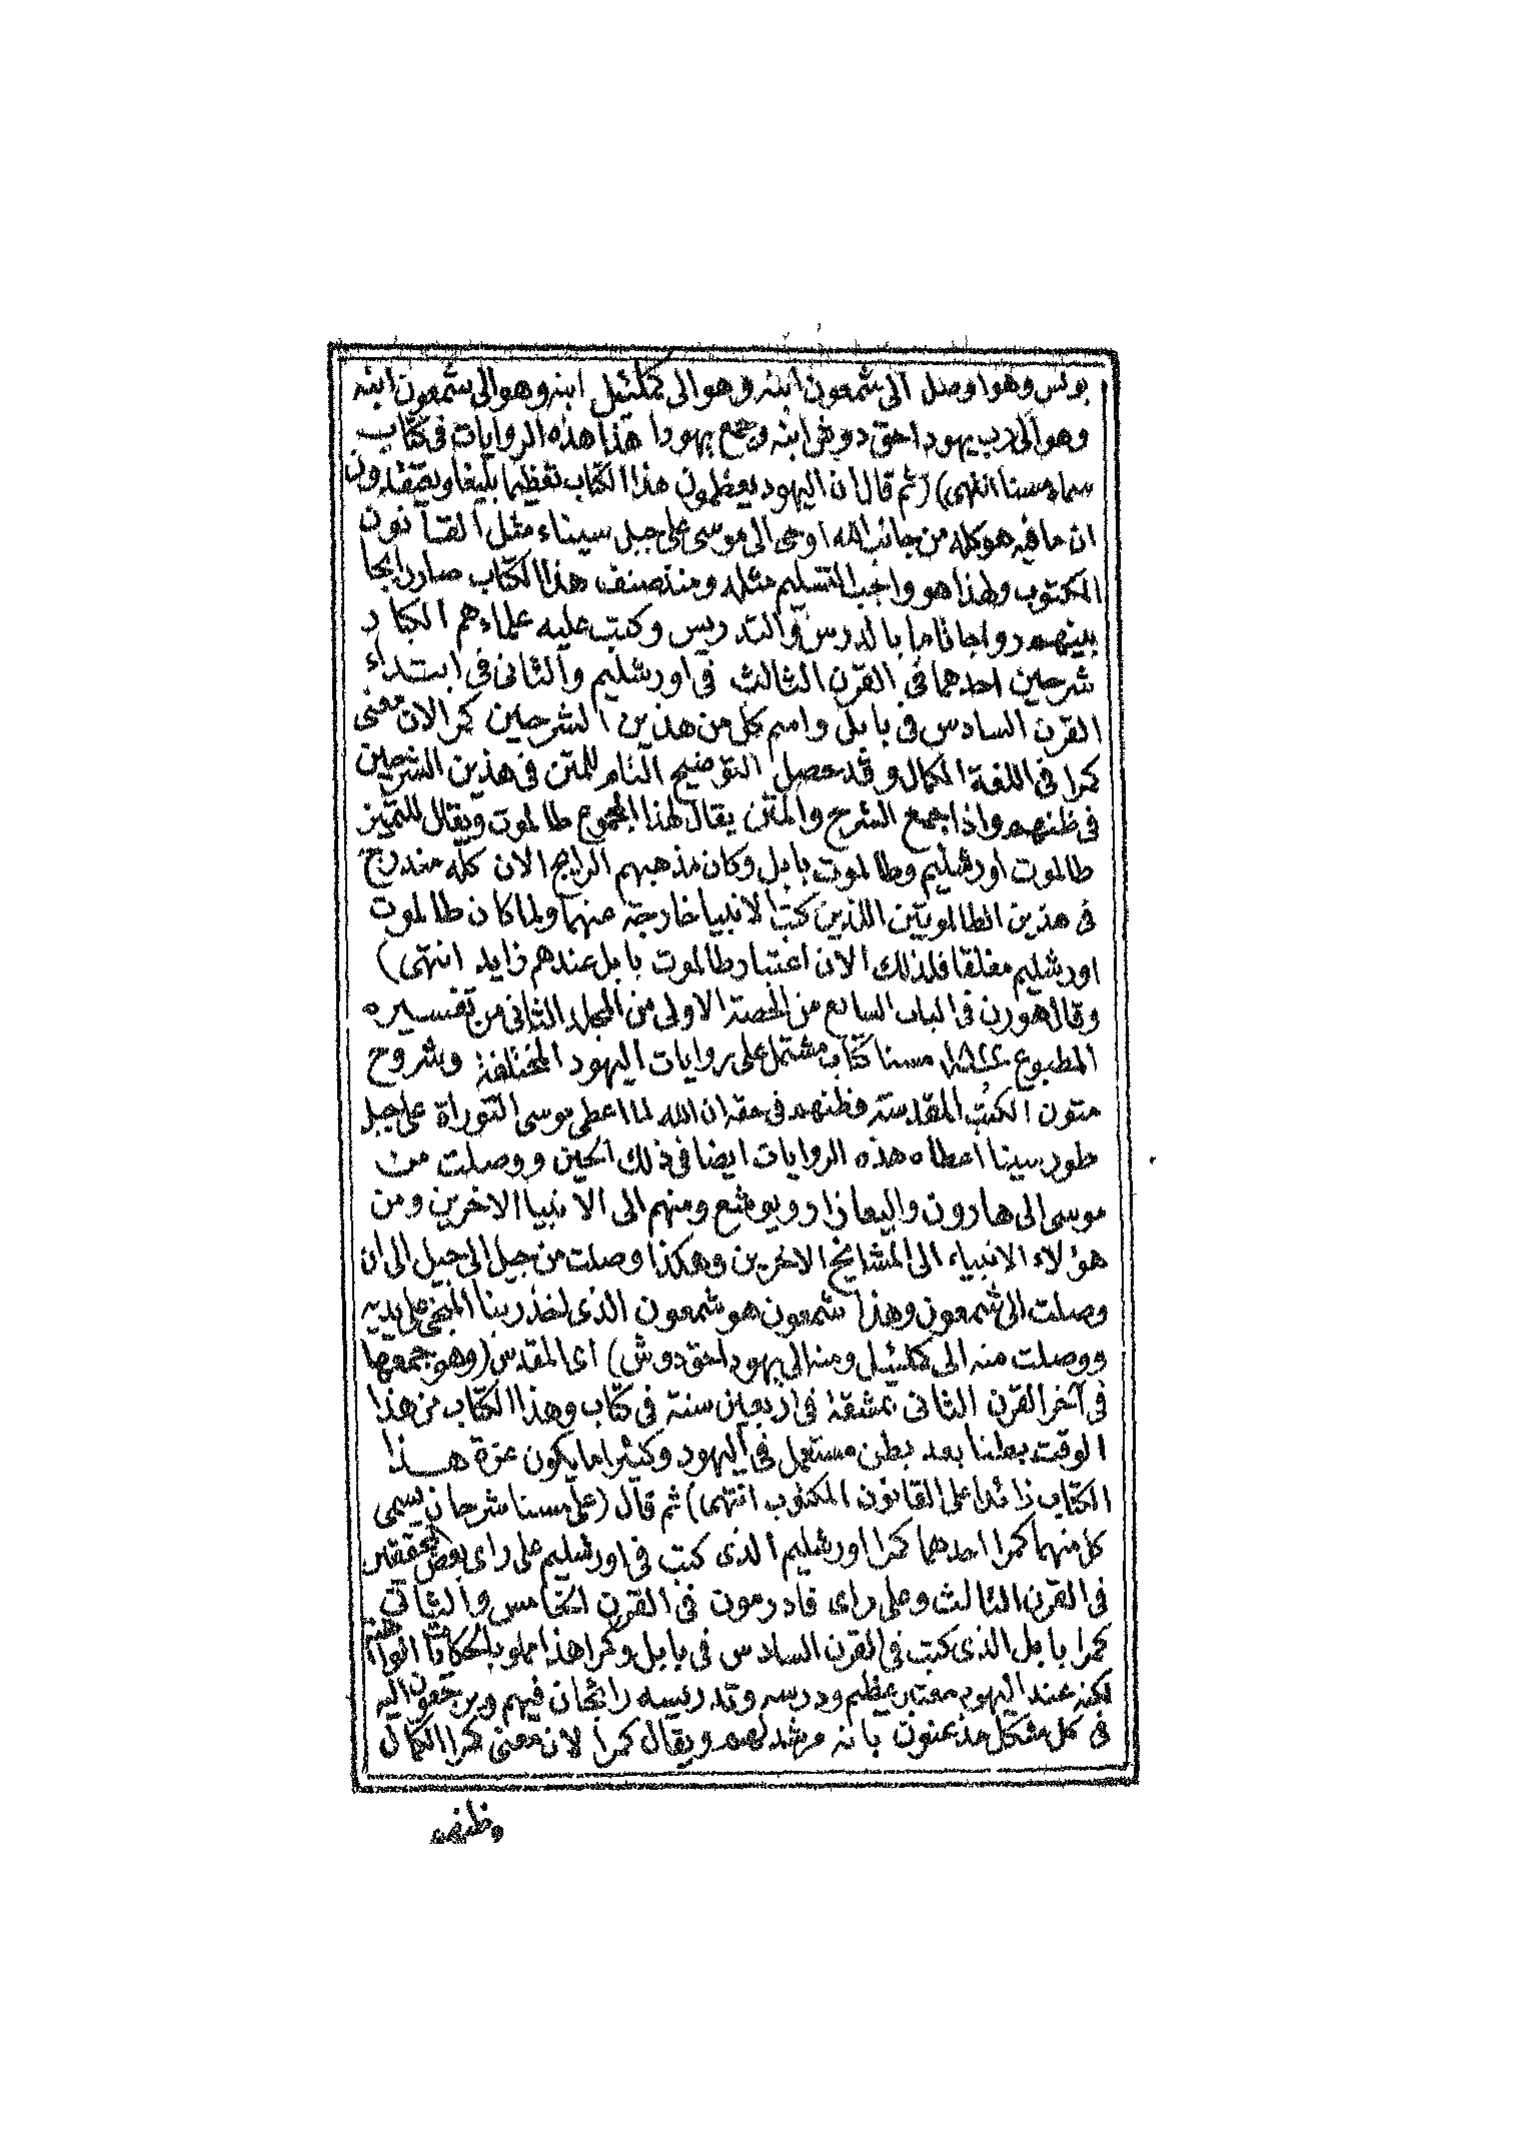 بولس وهو اوصل الى شمعون ابنه وهو الى كملئيل ابنه وهو الى شمعون ابنه
وهو الى رب يهودا حق دوش ابنه وجمع يهودا هذا هذه الروايات فى كتاب
سماه مسنا انتهى) (ثم قال ان اليهود يعظمون هذا الكتاب تعظيما بليغا ويعتقدون
ان ما فيه هو كله من جانب الله اوحى الى موسى على جبل سيناء مثل القانون
المكتوب ولهذا هو واجب التسليم مثله ومنذ صنف هذا الكتاب صار رايجا
بينهم رواجا تاما بالدرس والتدريس وكتب عليه علماءهم الكبار
شرحين احدهما فى القرن الثالث فى اورشليم والثانى فى ابتداء
القرن السادس فى بابل واسم كل من هذين الشرحين كمرا لان معنى
كمرا فى اللغة الكمال وقد حصل التوضيح التام للمتن فى هذين الشرحين
فى ظنهم واذا جمع الشرح والمتن يقال لهذا المجموع طالموت ويقال للتميز
طالموت اورشليم وطالموت بابل وكان مذهبهم الرايج الان كله مندرج
فى هذين الطالموتين اللذين كتب الانبيا خارجة منهما ولما كان طالموت
اورشليم مغلقا فلذلك الان اعتبار طالموت بابل عندهم زايد انتهى)
وقال هورن فى الباب السابع من الحصة الاولى من المجلد الثانى من تفسيره
المطبوع ١٨٢٢ مسنا كتاب مشتمل على روايات اليهود المختلفة وشروح
متون الكتب المقدسة وظنهم فى حقه ان الله لما اعطى موسى التوراة على جبل
طور سينا اعطاه هذه الروايات ايضا فى ذلك الحين ووصلت من
موسى الى هارون واليعازار ويوشع ومنهم الى الانبيا الاخرين ومن
هؤلاء الانبياء الى المشايخ الاخرين وهكذا وصلت من جيل الى جيل الى ان
وصلت الى شمعون وهذا شمعون هو شمعون الذى اخذ ربنا المنجى على يديه
ووصلت منه الى كملئيل ومنه الى يهودا حق دوش) اى المقدس (وهو جمعها
فى آخر القرن الثانى بمشقة فى اربعين سنة فى كتاب وهذا الكتاب من هذا
الوقت بطنا بعد بطن مستعمل فى اليهود وكثيرا ما يكون عزة هذا
الكتاب زائدا على القانون المكتوب انتهى) ثم قال (على مسنا شرحان يسمى
كل منهما كمرا احدهما كمرا اورشليم الذى كتب فى اورشليم على راى بعض المحققين
فى القرن الثالث وعلى راى فادرمون فى القرن الخامس والثانى
كمرا بابل الذى كتب فى القرن السادس فى بابل وكمرا هذا مملو بالحكايات الواهية
لكنه عند اليهود معتبر عظيم ودرسه وتدريسه رائجان فيهم ويرجعون اليه
فى كل مشكل مذعنون بانه مرشد لهم ويقال كمرا لان معنى كمرا الكمال
وظنهم